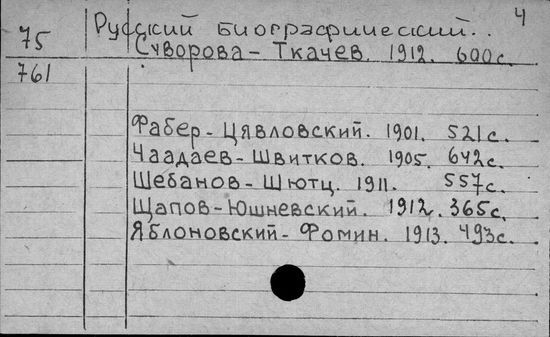 4
75 Русский биографический..
Суворова - Ткачев. 1912. 600с.
761
Фабер - Цявловский. 1901. 521с.
Чаадаев - Швитков. 1905. 642с.
Шебанов - Шютц. 1911. 557с.
Щапов - Юшневский. 1912. 365с.
Яблоновский - Фомин. 1913. 493с.